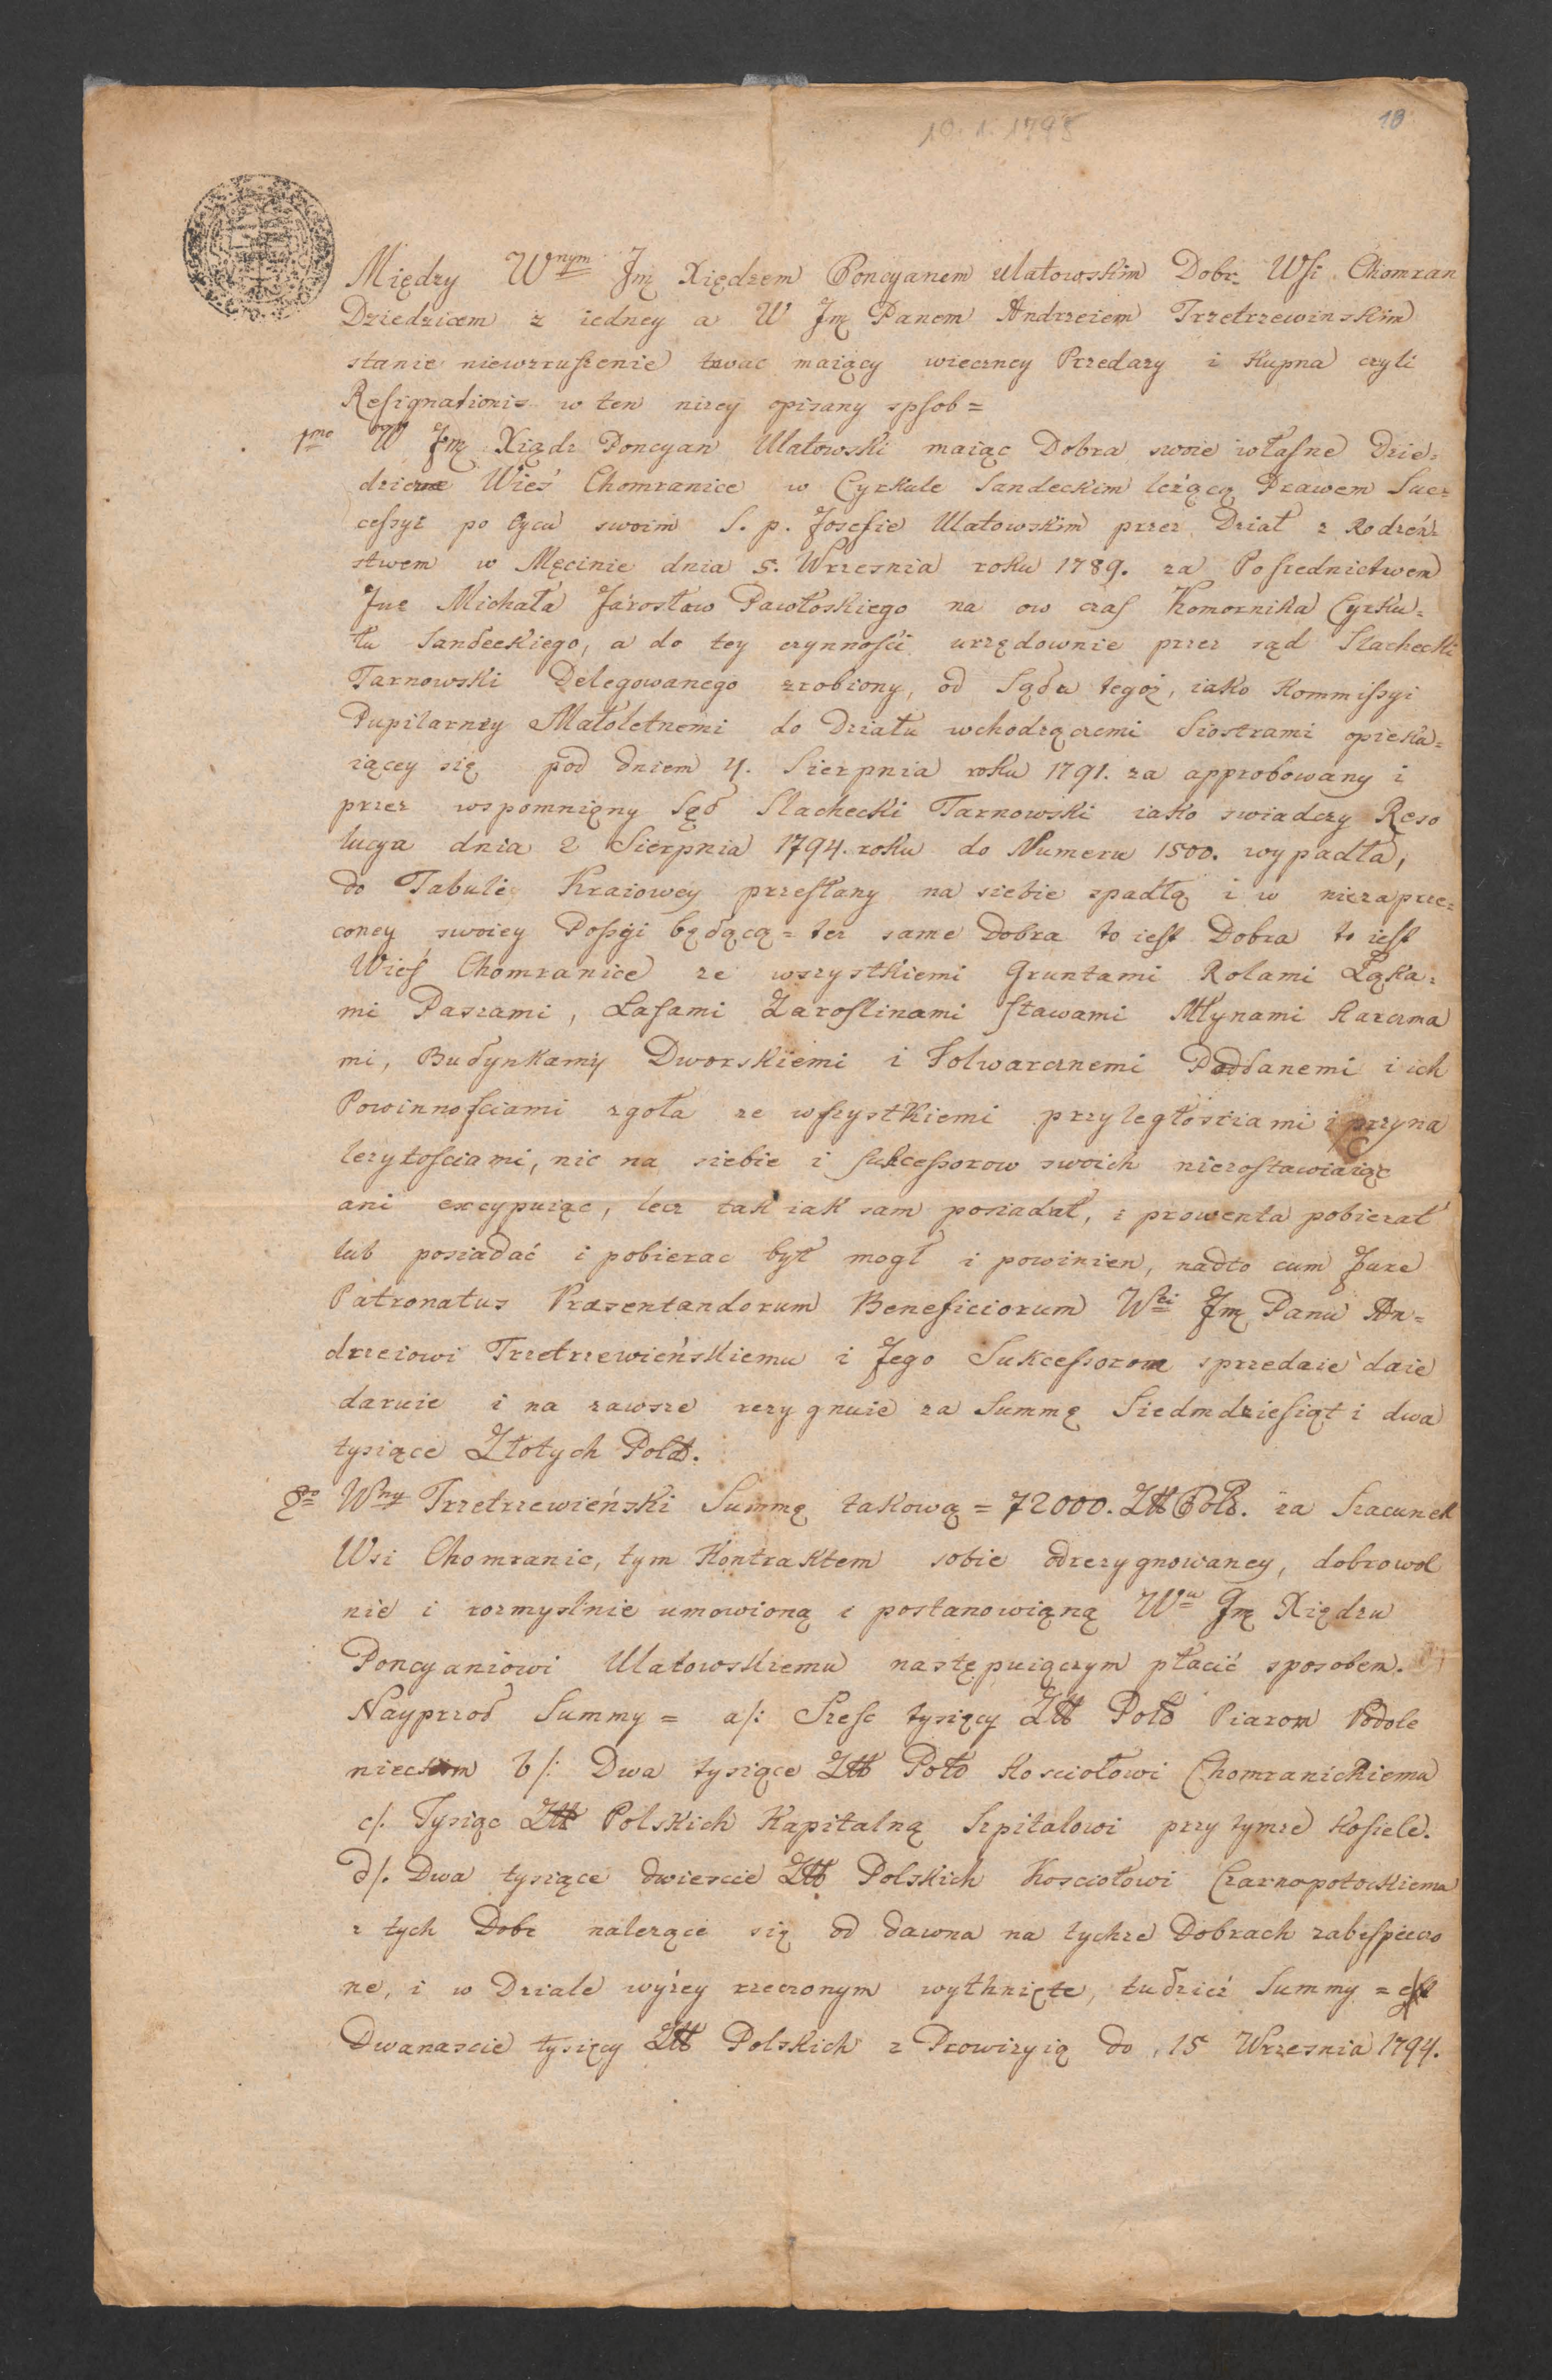 10. 1. 1795
10
Między W<sup>nym</sup> Jmę Xiędzem Poncyanem Ulatowskim Dobr Wsi Chomran
Dziedzicem z iedney a W Jmę Panem Andrzeiem Trzetrzewinskim
stanie niewzruszenie trwac maiący wieczney Przedazy i Kupna czyli
Resignationis w ten nizey opisany spsob =
1mo W Jmę Xiądz Poncyan Ulatowski maiąc Dobra swoie własne Dzie=
dziczne Wieś Chomranice w Cyrkule Sandeckim leżącą Prawem Suc=
cessyi po Oycu swoim S. p. Josefie Ulatowskim przez Dział z Rodzeń=
stwem w Męcinie dnia 5. Wrzesnia roku 1789. za Posrednictwem
Jmę Michała Jarosław Pawłoskiego na ow czas Komornika Cyrku=
łu Sandeckiego, a do tey czynnosci urzędownie przez sąd Slachecki
Tarnowski Delegowanego zrobiony, od Sądu tegoż, iako Kommissyi
Pupilarney Małoletnemi do Działu wchodzącemi Siostrami opieku=
iącey się pod dniem 4. Sierpnia roku 1791. za approbowany i
przez wspomniąny Sąd Slachecki Tarnowski iako swiadczy Reso
lucya dnia 2 Sierpnia 1794. roku do Numeru 1500. wypadła,
do Tabule Kraiowey przesłany na siebie spadłą i w niezaprze=
coney swoiey Possyi będącą = tez same Dobra to iest Dobra to iest
Wieś Chomranice ze wszystkiemi Gruntami Rolami Ląka=
mi Paszami, Lasami Zaroslinami stawami Młynami Karczma
mi, Budynkamy Dworskiemi i Folwarcznemi Poddanemi i ich
Powinnosciami zgoła ze wszystkiemi przyległościami i przyna
lezytosciami, nic na siebie i sukcessorow swoich niezostawiaiąc
ani excypuiąc, lecz tak iak sam posiadał, i prowenta pobierał
lub posiadać i pobierac był mogł i powinien, nadto cum Jure
Patronatus Præsentandorum Beneficiorum W Jmę Panu An=
drzeiowi Trzetrzewieńskiemu i Jego Sukcessorom sprzedaie daie
daruie i na zawsze rezygnuie za Summę Siedmdziesiąt i dwa
tysiące Złotych Pold.
2do W<sup>ny</sup> Trzetrzewieński Summę takową = 72000. Złł Pols. za Szacunek
Wsi Chomranic, tym Kontraktem sobie odrezygnowaney, dobrowol
nie i rozmyslnie umowioną i postanowiąną W<sup>u</sup> Jmę Xiędzu
Poncyaniowi Ulatowskiemu następuiączym płacić sposobem.
Nayprzod Summy = a/: Szesc tysięcy Złł Pols Piarom Podole
nieckim b/: Dwa tysiące Złł Pols Kosciołowi Chomranickiemu
c/. Tysiąc Złł Polskich Kapitalną Szpitalowi przy tymze Kosiele.
d/. Dwa tysiące dwiescie Złł Polskich Kosciołowi Czarnopotockiemu
z tych Dobr nalezące się od dawna na tychze Dobrach zabespieczo
ne, i w Dziale wyżey rzeczonym wytknięte, tudzież Summy =
Dwanascie tysięcy Złł Polskich z Prowizyią do 15 Wrzesnia 1794.